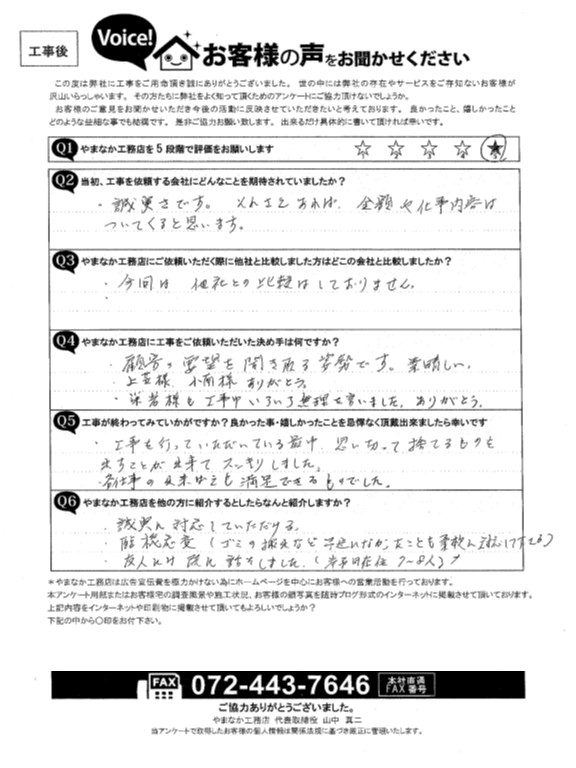 工事後
Voice!
お客様の声をお聞かせください
この度は弊社に工事をご用命頂き誠にありがとうございました。世の中には弊社の存在やサービスをご存知ないお客様が
沢山いらっしゃいます。その方たちに弊社をよく知って頂くためのアンケートにご協力頂けないでしょうか。
お客様のご意見をお聞かせいただき今後の活動に反映させていただきたいと考えております。良かったこと、嬉しかったこと
どのような些細な事でも結構です。是非ご協力お願い致します。出来るだけ具体的に書いて頂ければ幸いです。
Q1 やまなか工務店を5段階で評価をお願いします ☆ ☆ ☆ ☆ ★
Q2 当初、工事を依頼する会社にどんなことを期待されていましたか?
・誠実さです。 それさえあれば、金額や仕事内容は
ついてくると思います。
Q3 やまなか工務店にご依頼いただく際に他社と比較しました方はどこの会社と比較しましたか?
・今回は他社との比較はしておりません。
Q4 やまなか工務店に工事をご依頼いただいた決め手は何ですか?
・顧客の要望を聞き取る姿勢です。素晴しい。
・様、様ありがとう。
・業者様も工事中いろいろ無理を言いました。ありがとう。
Q5 工事が終わってみていかがですか?良かった事・嬉しかったことを忌憚なく頂戴出来ましたら幸いです
・工事を行っていただいている最中、思い切って捨てるものも
出すことが出来てスッキリしました。
・各仕事の出来ばえも満足できるものでした。
Q6 やまなか工務店を他の方に紹介するとしたらなんと紹介しますか?
・誠実に対応していただける。
・臨機応変(ゴミの捨てなど
・友人には既に話をしました。
*やまなか工務店は広告宣伝費を極力かけない為にホームページを中心にお客様への営業活動を行っております。
本アンケート用紙またはお客様宅の調査風景や施工状況、お客様の顔写真を随時ブログ形式のインターネットに掲載させて頂いております。
上記内容をインターネットや印刷物に掲載させて頂いてもよろしいでしょうか?
下記の中から○印をお付下さい。
FAX 072-443-7646 本社直通FAX番号
ご協力ありがとうございました。
やまなか工務店 代表取締役 山中 真二
当アンケートで取得したお客様の個人情報は関係法規に基づき厳正に管理いたします。